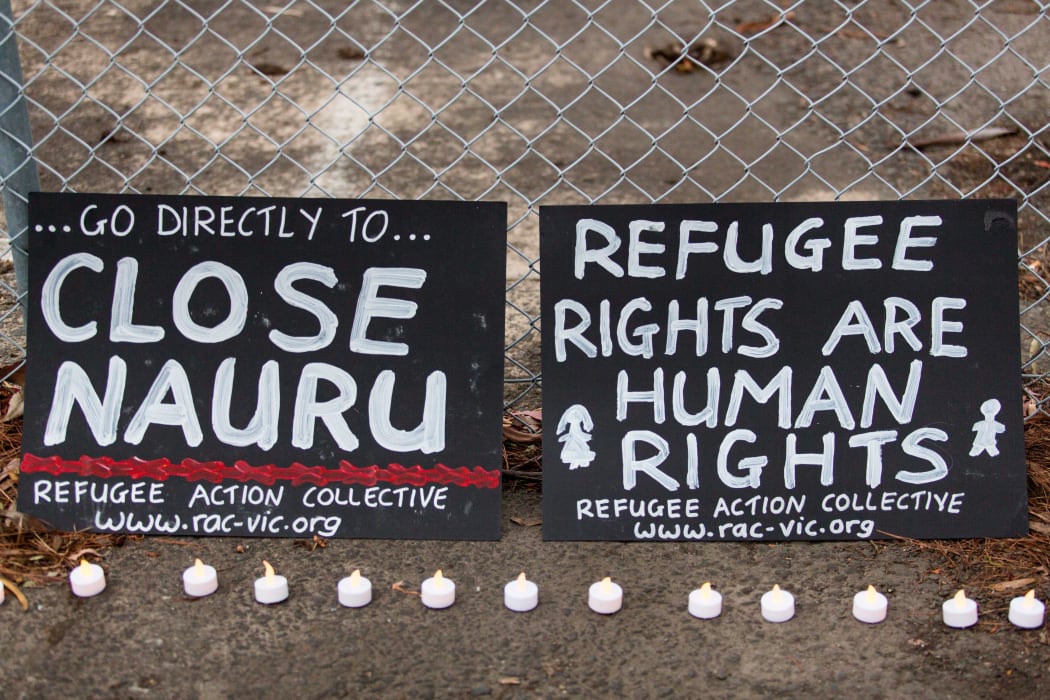 ...GO DIRECTLY TO...
CLOSE
NAURU
REFUGEE ACTION COLLECTIVE
www.rac-vic.org
REFUGEE
RIGHTS ARE
HUMAN
RIGHTS
REFUGEE ACTION COLLECTIVE
www.rac-vic.org